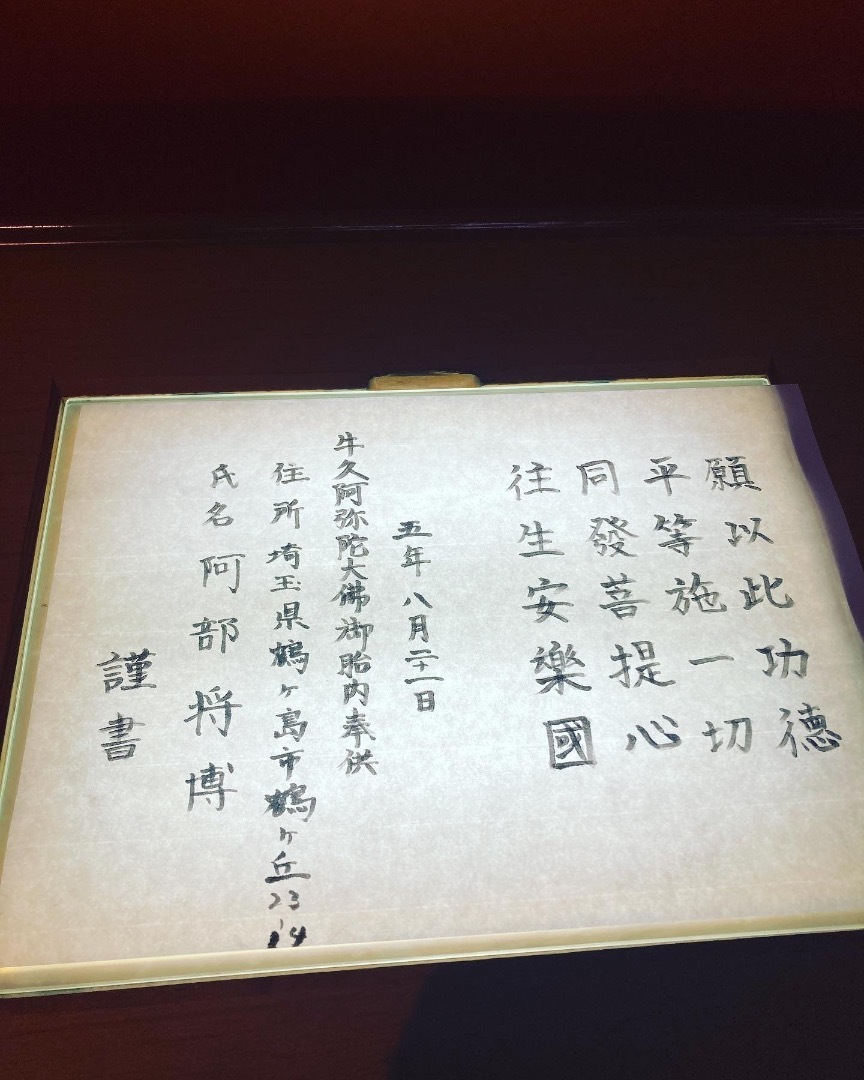 願以此功德
平等施一切
同發菩提心
往生安樂國
五年八月二十一日
牛久阿弥陀大佛御胎内奉供
住所埼玉県鶴ヶ島市鶴ヶ丘23-14
氏名阿部将博
謹書